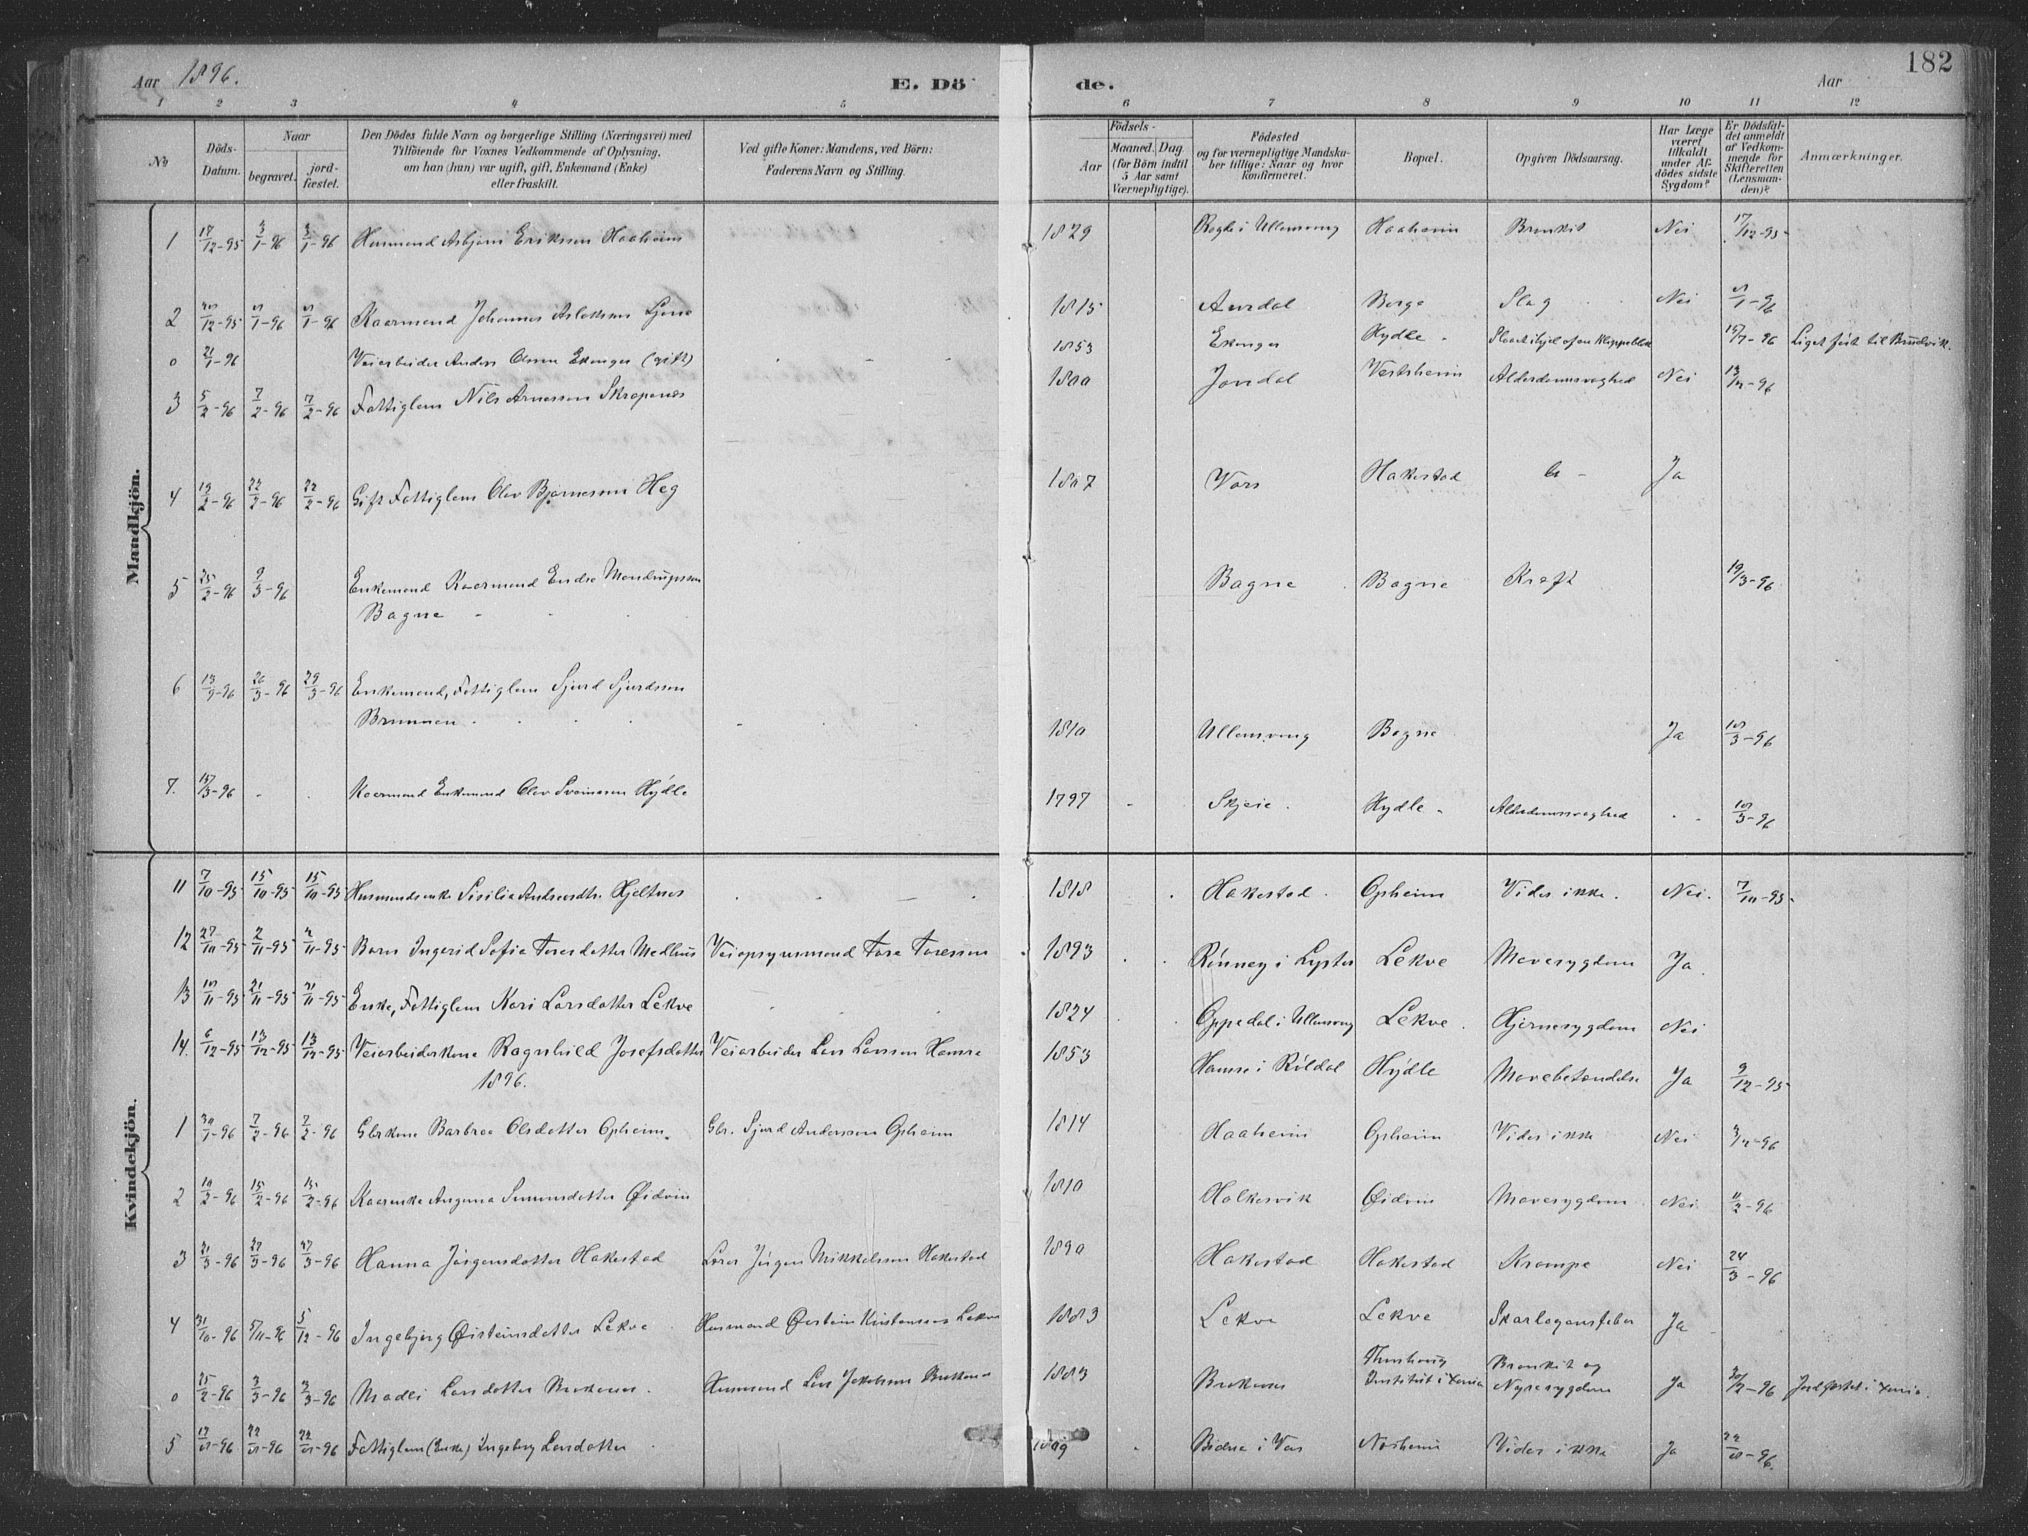 Aar 1896.
E. Dö
de.
Aar
182
1 2 3 4 5 6 7 8 9 10 11 12
No
Döds-Datum.
Naar
begravet.
jord-fæstet.
Den Dödes fulde Navn og borgerlige Stilling (Næringsvei) med
Tilföiende for Voxnes Vedkommende af Oplysning,
om han (hun) var ugift, gift, Enkemand (Enke)
eller fraskilt.
Ved gifte Koner: Mandens, ved Börn:
Faderens Navn og Stilling.
Födsels-
Aar
Maaned. Dag.
(for Börn indtil
5 Aar samt
Værnepligtige).
Födested
og for værnepligtige Mandska-
ber tillige: Naar og hvor
konfirmeret.
Bopæl.
Opgiven Dödsaarsag.
Har Læge
været
tilkaldt
under Af-
dödes sidste
Sygdom?
Er Dödsfal-
det anmeldt
af Vedkom-
mende for
Skifteretten
(Lensman-
den)?
Anmærkninger.
Mandkjön.
1 17/12-95 3/1-96 3/1-96 Husmand Asbjørn Eriksen Haaheim 1829 i Ullensvang Haaheim Bronkit Nei 17/12-95
2 /12-95 /1-96 /1-96 Kaarmand Johannes Aslaksen 1815 Aurdal Berge Slag Nei /1-96
0 21/1-96 Veiarbeider Anders Olsen Ekanger (gift) 1853 Ekanger Hydle Slaaet ihjel af en Liget ført til Brudvik.
3 5/2-96 7/2-96 7/2-96 Fattiglem Nils Arnesson Skrapenæs 1800 Jondal Vestrheim Alderdomssvaghed Nei 13/2-96
4 19/2-96 22/2-96 22/2-96 Gift Fattiglem Olav Bjørnesson Heg 1807 Vors Hakestad Ja
5 25/2-96 9/3-96 Enkemand Kaarmand Endre Mandrupssen
Bagne Bagne Bagne Kræft 19/3-96
6 13/3-96 26/3-96 29/3-96 Enkemand, Fattiglem Sjurd Sjurdssen
1810 Ullensvang Bagne Ja /3-96
7. /3-96 Kaarmand Enkemand Olav Hydle 1797 Skjeie Hydle Alderdomssvaghed /3-96
Kvindekjön.
11 7/10-95 15/10-95 15/10-95 Husmandsenke Sisilia Hjeltnes 1818 Hakestad Opheim Vides ikke. Nei. 7/10-95
12 27/10-95 2/11-95 2/11-95 Barn Ingerid Sofia Toresdatter Medhus Veiopsynsmand Tore Toresen 1893 i Lyster Lekve Mavesygdom Ja
13 /11-95 21/11-95 21/11-95 Enke, Fattiglem Kari Larsdatter Lekve 1824 Oppedal i Ullensvang Lekve Hjernesygdom Nei
14. 6/12-95 13/12-95 13/12-95 Veiarbeiderkone Ragnhild Josefsdatter Veiarbeider Lars Larssen Hamre 1853 Hamre i Røldal Hydle Mavebetændelse Ja 9/12-95
1896.
1 30/1-96 7/2-96 7/2-96 Gbrkone Barbroe Olsdatter Opheim Gbr. Sjurd Anderssen Opheim 1814 Haaheim Opheim Vides ikke Nei
2 10/2-96 15/2-96 15/2-96 Kaarenke Angunna Simonsdatter Øidvin 1810 Holkesvik Øidvin Mavesygdom Nei 11/2-96
3 21/3-96 27/3-96 27/3-96 Hanna Jørgensdatter Hakestad Lærer Jørgen Mikkelsen Hakestad 1890 Hakestad Hakestad Krampe Nei 24/3-96
4 31/10-96 5/11-96 5/12-96 Ingebjørg Øisteinsdatter Lekve Husmand Øistein Kristensson Lekve 1883 Lekve Lekve Skarlagensfeber Ja
0 25/2-96 3/3-96 3/3-96 Madli Larsdatter Husmand Lars Jakobsen 1883 Institut i Bronkit og
Nyresygdom Ja
5 Fattiglem (Enke) Ingeborg Larsdatter 1809 i Vors Norheim Vides ikke Ja